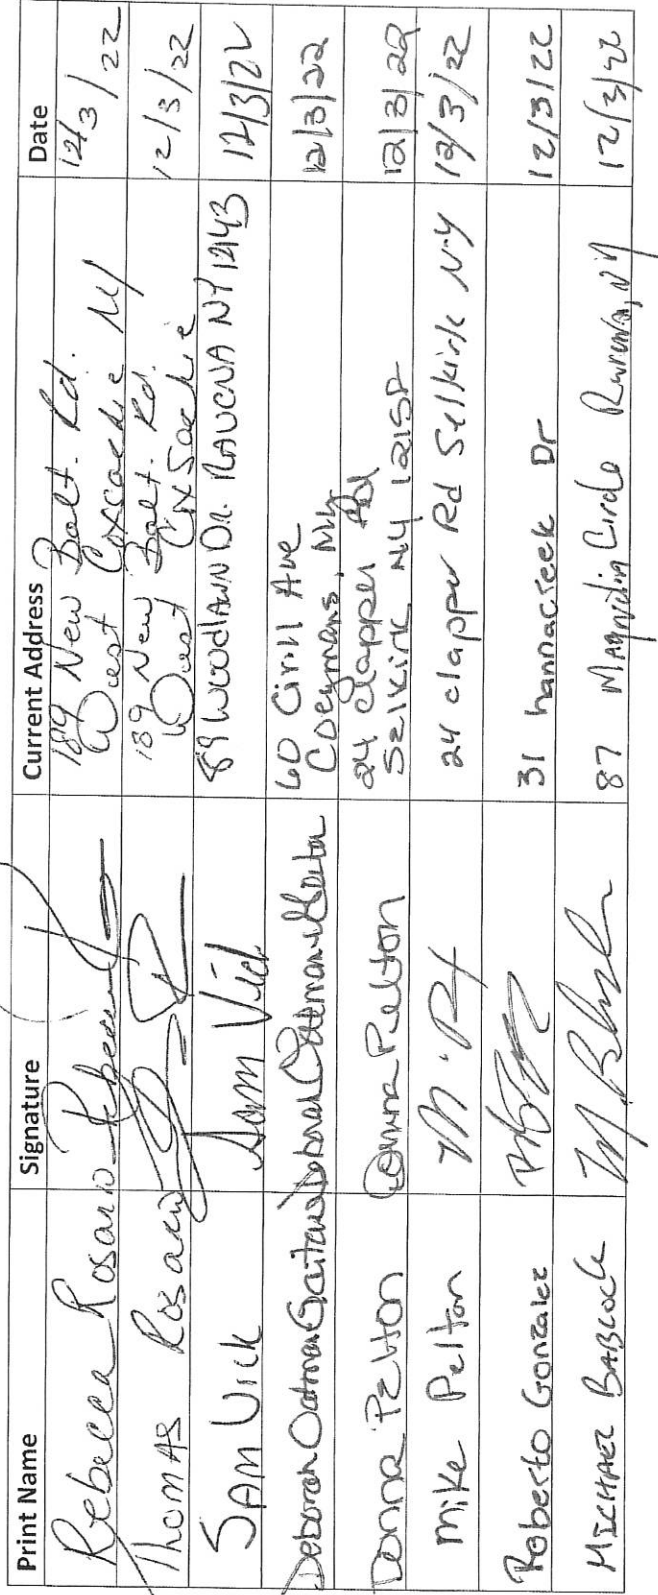 Print Name Signature Current Address Date
Rebecca Rosario Rebecca 189 New Balt. Rd. 12/3/22
West Coxsackie NY
Thomas Rosario 189 New Balt. Rd. 12/3/22
West Coxsackie
SAM VICK Sam Vick 89 WOODLAWN DR. RAVENA NY 12143 12/3/22
Deborah Oatman Gaitan Deborah Oatman Gaitan 60 Civill Ave 12/3/22
Coeymans, NY
Donna Pelton Donna Pelton 24 Clapper Rd 12/3/22
Selkirk NY 12158
Mike Pelton M. P 24 clapper Rd Selkirk N-Y 12/3/22
Roberto Gonzalez 31 hannacreek Dr 12/3/22
MICHAEL BABCOCK M. 87 Magnolia Circle Ravena, NY 12/3/22